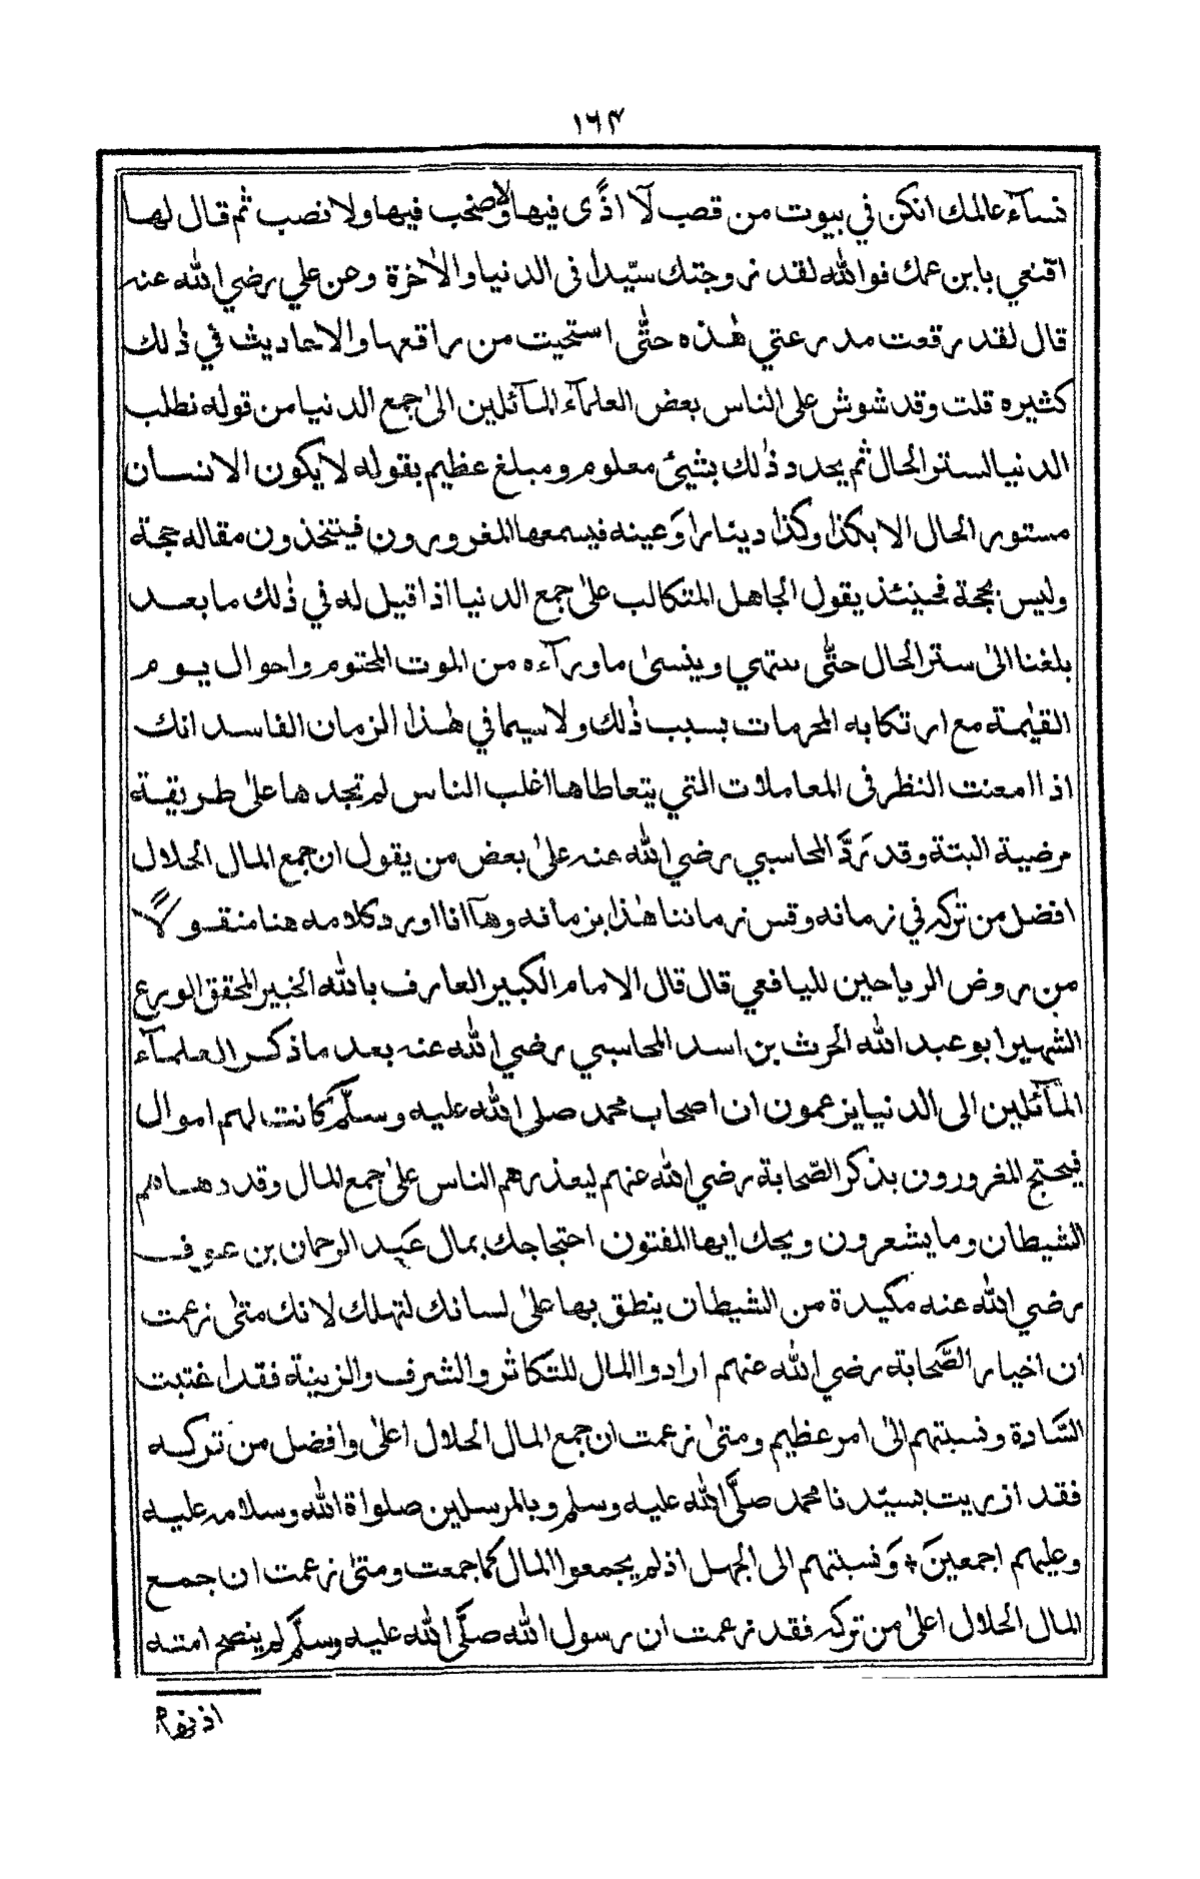 ١٦٣
نسآء عالمك انكن في بيوت من قصب لآ اذًى فيها ولا صخب فيها ولا نصب ثم قال لها
اقنعي بابن عمك فوالله لقد زوجتك سيّدا فى الدنيا والاٰخرة وعن علي رضي الله عنه
قال لقد رقعت مدرعتي هٰذه حتّٰى استحيت من راقعها والاحاديث في ذٰلك
كثيره قلت وقد شوش على الناس بعض العلمآء المآئلين الىٰ جمع الدنيا من قوله نطلب
الدنيا لستر الحال ثم يحدد ذٰلك بشيئ معلوم ومبلغ عظيم بقوله لا يكون الانسان
مستور الحال الا بكذا وكذا دينارا وَعينه فيسمعها المغرورون فيتخذون مقاله حجة
وليس بحجة فحينئذ يقول الجاهل المتكالب علىٰ جمع الدنيا اذا قيل له في ذٰلك ما بعد
بلغنا الىٰ ستر الحال حتّٰى ننتهي وينسىٰ ما ورآءه من الموت المختوم واحوال يوم
القيٰمة مع ارتكابه المحرمات بسبب ذٰلك ولا سيما في هٰذا الزمان الفاسد انك
اذا امعنت النظر فى المعاملات التي يتعاطاها اغلب الناس لم تجدها علىٰ طريقة
مرضية البتة وقد رَدَّ المحاسبي رضي الله عنه علىٰ بعض من يقول ان جمع المال الحلال
افضل من تركه في زمانه وقس زماننا هٰذا بزمانه وهآ انا اورد كلامه هنا منقولًا
من روض الرياحين لليافعي قال قال الامام الكبير العارف بالله الخبير المحقق الورع
الشهير ابو عبد الله الحرث بن اسد المحاسبي رضي الله عنه بعد ما ذكر العلمآء
المآئلين الى الدنيا يزعمون ان اصحاب محمد صلى الله عليه وسلّم كانت لهم اموال
فيحتج المغرورون بذكر الصّحابة رضي الله عنهم ليعذرهم الناس علىٰ جمع المال وقد دهاهم
الشيطان وما يشعرون ويحك ايها المفتون احتجاجك بمال عبد الرحمان بن عوف
رضي الله عنه مكيدة من الشيطان ينطق بها علىٰ لسانك لتهلك لانك متىٰ زعمت
ان اخيار الصّحابة رضي الله عنهم ارادوا المال للتكاثر والشرف والزينة فقد اغتبت
السّادة ونسبتهم الىٰ امر عظيم ومتىٰ زعمت ان جمع المال الحلال اعلىٰ وافضل من تركه
فقد ازريت بسيّدنا محمد صلَّى الله عليه وسلم وبالمرسلين صلواة الله وسلامه عليه
وعليهم اجمعينَ + وَنسبتهم الى الجهل اذ لم يجمعوا المال كما جمعت ومتىٰ زعمت ان جمع
المال الحلال اعلىٰ من تركه فقد زعمت ان رسول الله صلَّى الله عليه وسلَّم لم ينصح امته
اذ نهٰ‍م